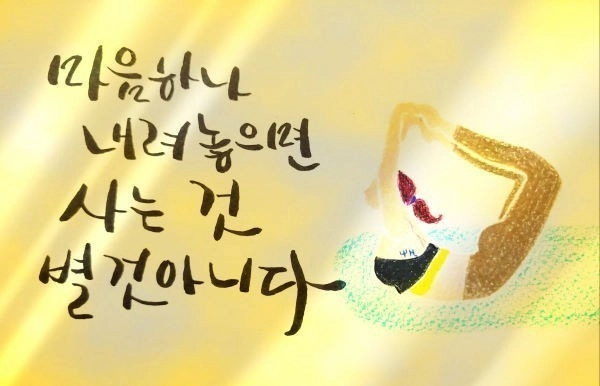 마음하나
내려놓으면
사는 것
별것아니다.